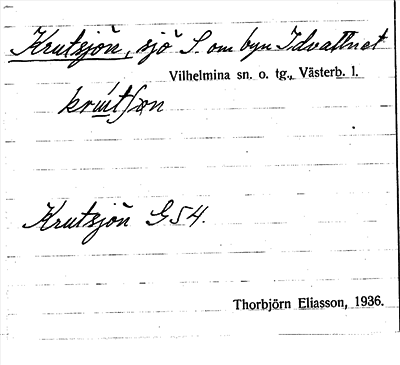 Krutsjön, sjö S. om byn Idvattnet
Vilhelmina sn. o. tg., Västerb. l.
Krutsjön G54.
Thorbjörn Eliasson, 1936.